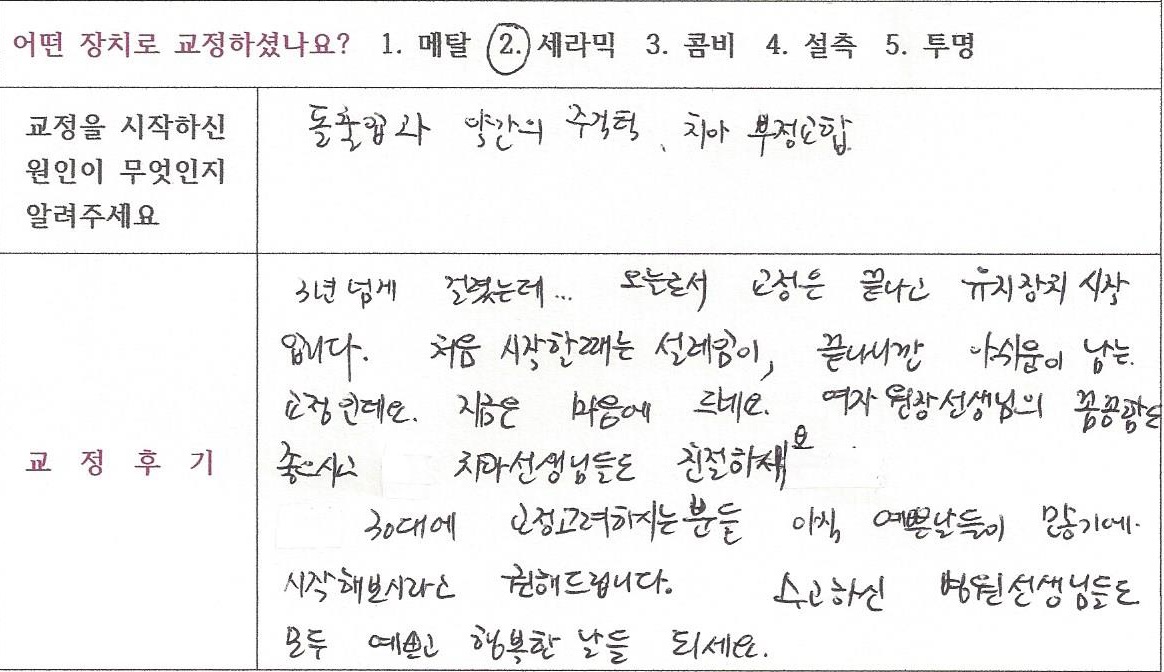 어떤 장치로 교정하셨나요? 1. 메탈 2. 세라믹 3. 콤비 4. 설측 5. 투명
교정을 시작하신
원인이 무엇인지
알려주세요
돌출입과 약간의 주걱턱, 치아 부정교합.
교 정 후 기
3년 넘게 걸렸는데... 오늘로서 교정은 끝나고 유지장치 시작
입니다. 처음 시작할때는 설레임이, 끝나니깐 아쉬움이 남는
교정인데요. 지금은 마음에 드네요. 여자 원장선생님의 꼼꼼함도
좋으시고 치과선생님들도 친절하세요
30대에 교정고려하시는 분들 아직 예쁜날들이 많기에
시작해보시라고 권해드립니다. 수고하신 병원선생님들도
모두 예쁘고 행복한 날들 되세요.